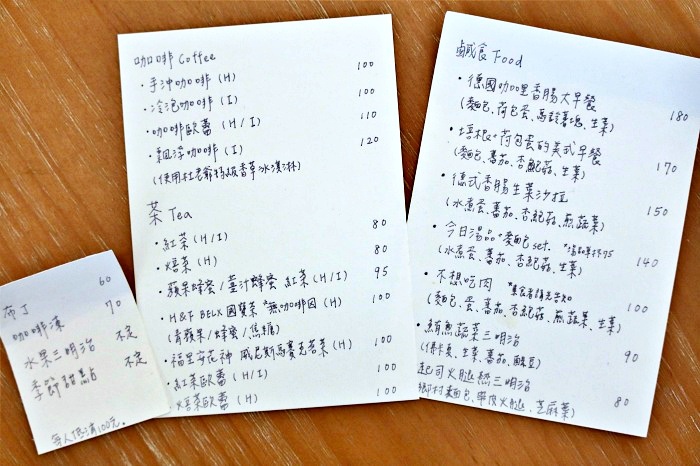 咖啡 Coffee
・手沖咖啡 (H) 100
・冷泡咖啡 (I) 100
・咖啡歐蕾 (H/I) 110
・飄浮咖啡 (I) 120
(使用杜老爺特級香草冰淇淋)
茶 Tea
・紅茶 (H/I) 80
・焙茶 (H) 80
・蘋果蜂蜜/薑汁蜂蜜 紅茶 (H/I) 95
・H&F BELX 國寶茶 *無咖啡因 (H) 100
(青蘋果/蜂蜜/焦糖)
・福里安花神 威尼斯馬賽克茗茶 (H) 100
・紅茶歐蕾 (H/I) 100
・焙茶歐蕾 (H) 100
鹹食 Food
・德國咖哩香腸大早餐 180
(麵包、荷包蛋、馬鈴薯塊、生菜)
・培根+荷包蛋的美式早餐 170
(麵包、蕃茄、杏鮑菇、生菜)
・德式香腸生菜沙拉 150
(水煮蛋、蕃茄、杏鮑菇、煎蔬菜)
・今日湯品+麵包 set. 75 140
(水煮蛋、蕃茄、杏鮑菇、生菜)
・不想吃肉 *素食者請先告知 100
(麵包、蛋、蕃茄、杏鮑菇、煎蔬果、生菜)
・鮪魚蔬菜三明治 90
生菜、蕃茄、酸豆)
起司火腿熱三明治 80
鄉村麵包、火腿、芝麻葉)
布丁 60
咖啡凍 70
水果三明治 不定
季節甜點 不定
每人低消100元。